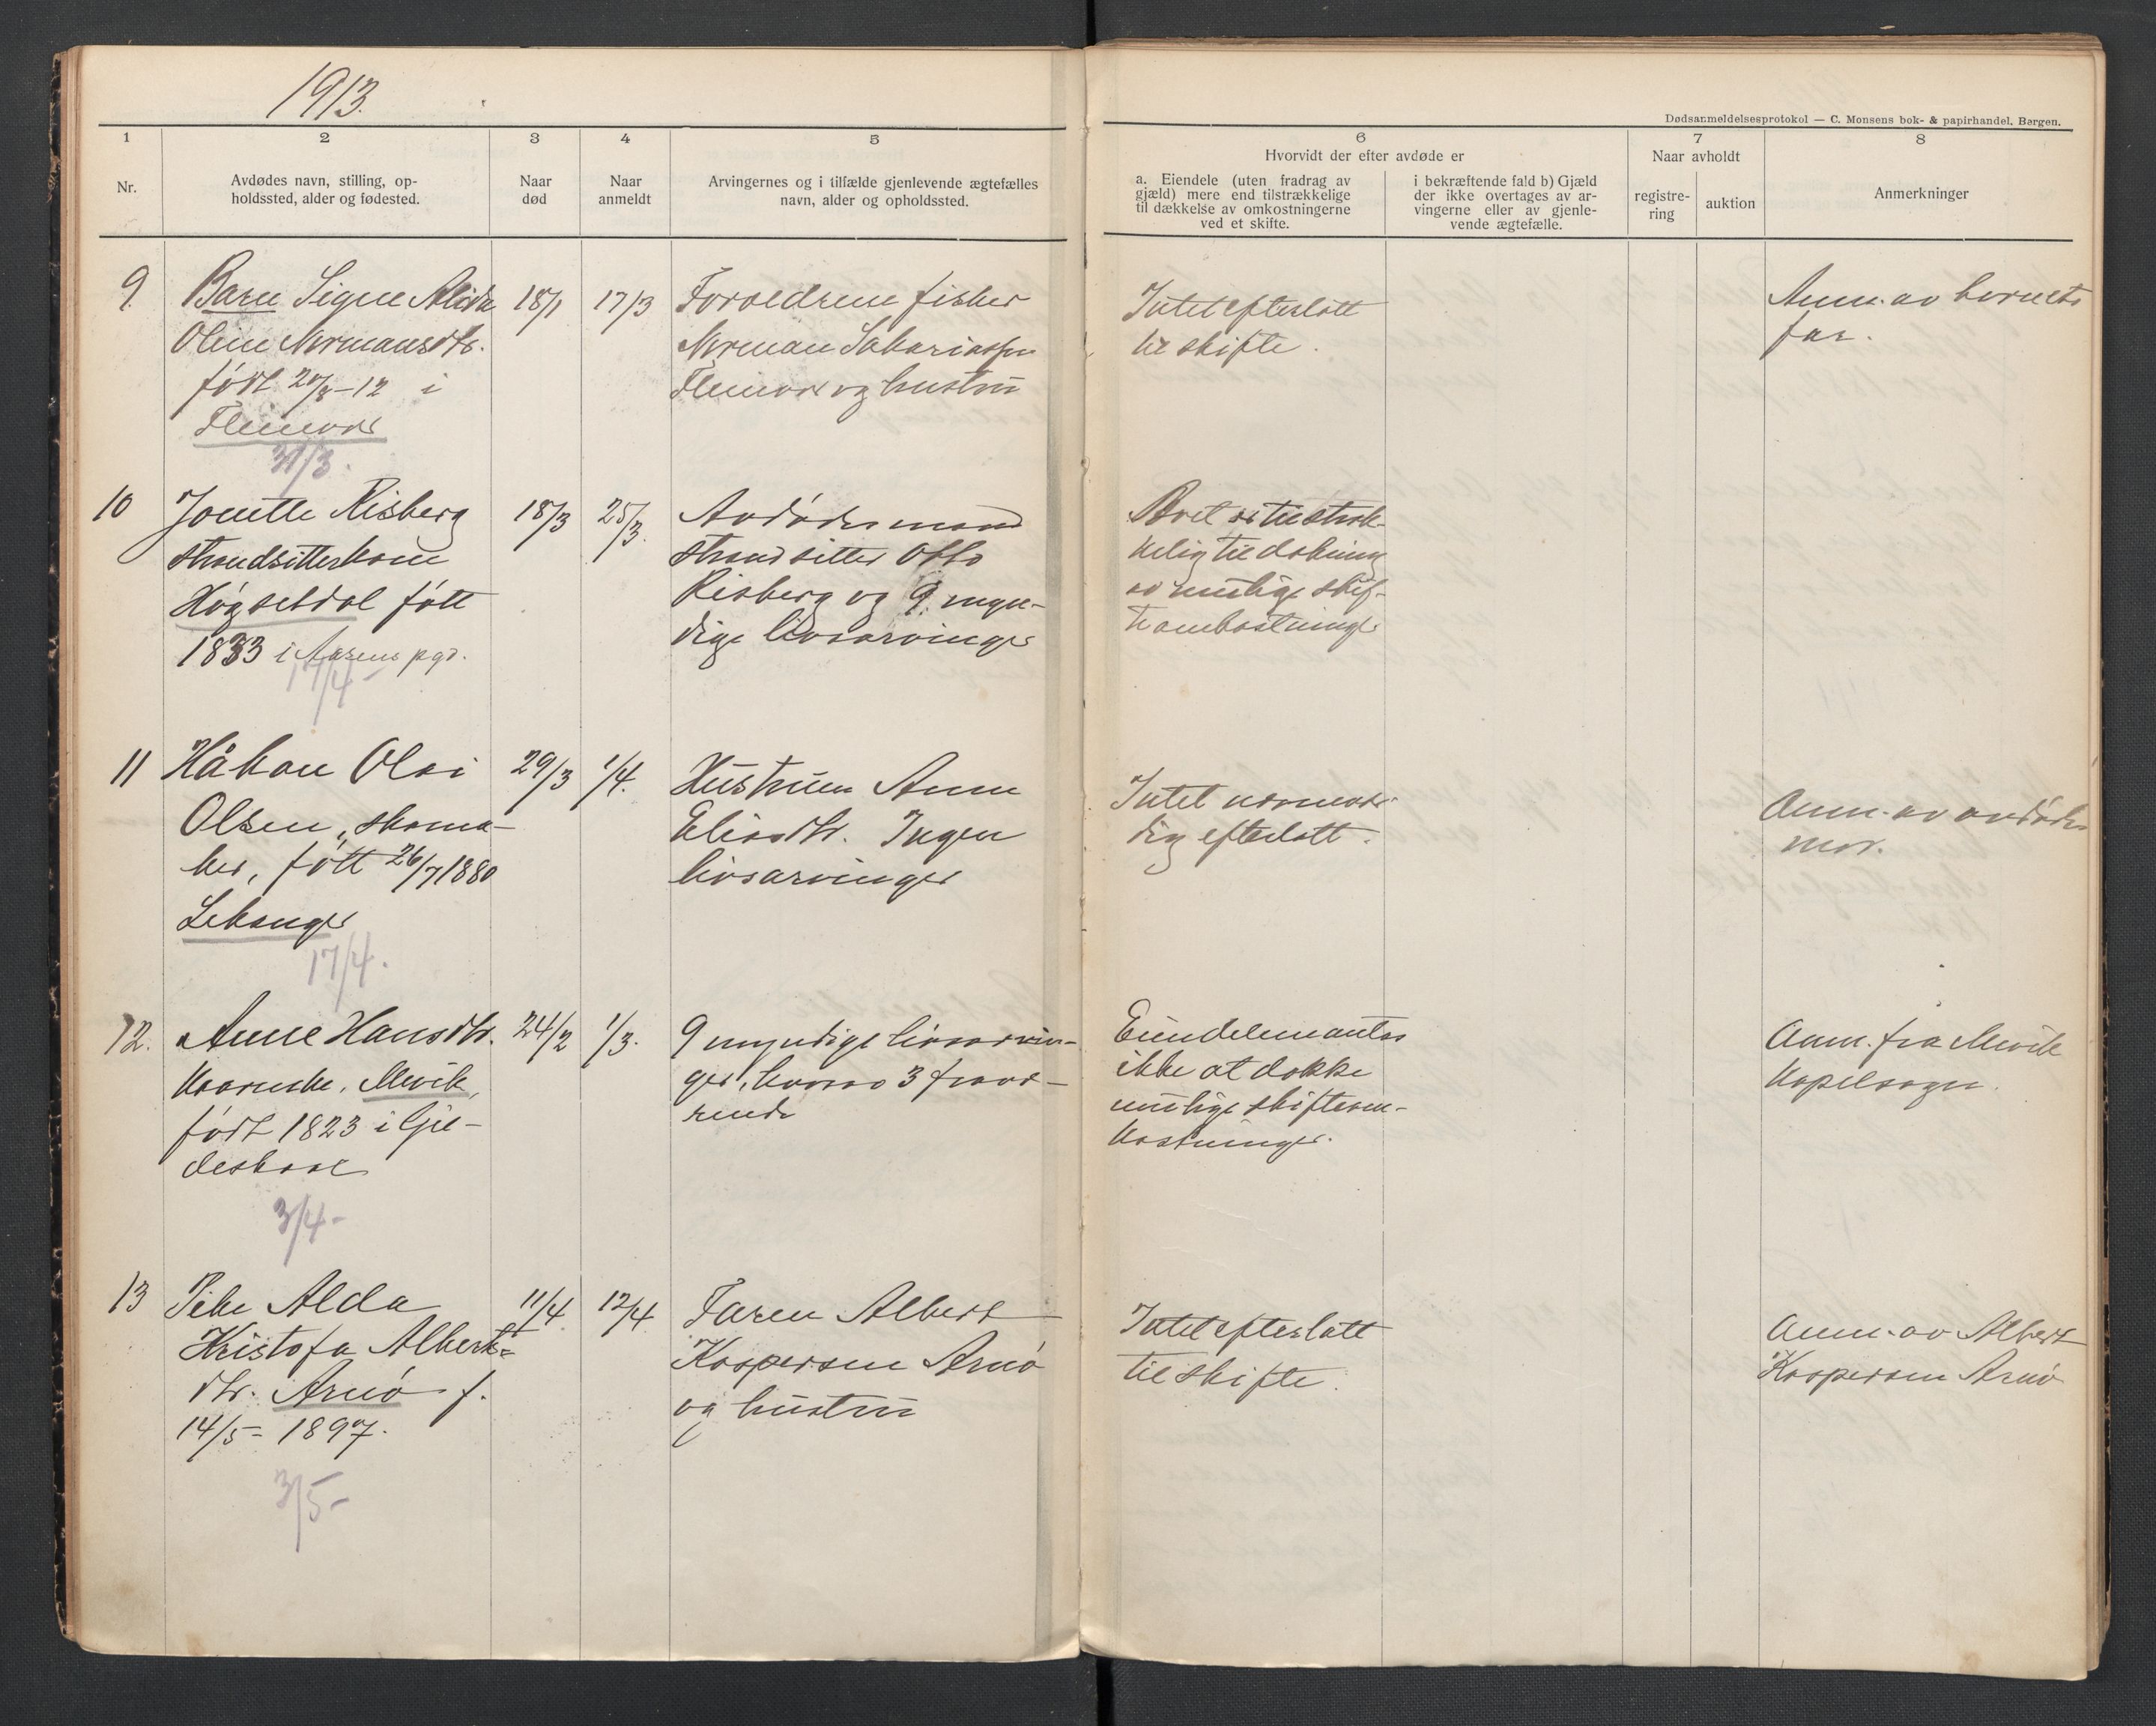 1913.
Dødsanmeldelsesprotokol — C. Monsens bok- & papirhandel, Bergen.
1
2
3
4
5
6
7
8
Nr.
Avdødes navn, stilling, op-
holdssted, alder og fødested.
Naar
død
Naar
anmeldt
Arvingernes og i tilfælde gjenlevende ægtefælles
navn, alder og opholdssted.
Hvorvidt der efter avdøde er
a. Eiendele (uten fradrag av
gjæld) mere end tilstrækkelige
til dækkelse av omkostningerne
ved et skifte.
i bekræftende fald b) Gjæld
der ikke overtages av ar-
vingerne eller av gjenle-
vende ægtefælle.
Naar avholdt
registre-
ring
auktion
Anmerkninger
9.
Barn Signe Alida
Oline Normansdtr.
født 20/8-12 i
31/3.
18/1
17/3
Forældrene fisker
Norman Sakariassen
og hustru
Intet efterlatt
til skifte.
Anm. av barnets
far.
10
Jonette Risberg
strandsitterkone
Høgsetdal født
1833 i pgd.
17/4-
18/3
25/3.
Avdødes mand
strandsitter Otto
Risberg og 9 myn-
dige livsarvinger
Boet er tilstræk-
kelig til dækning
av mulige skif-
teomkostninger
11
Håkon Olai
Olsen, skoma-
ker, født 26/7 1880
Lekanger
17/4.
29/3
1/4.
Hustruen Anna
Eliasdtr. Ingen
livsarvinger
Intet nævnevær-
dig efterlatt.
Anm. av avdødes
mor.
12.
Anne Hansdtr.
Mevik,
født 1823 i Gil-
deskaal
3/4-
24/2
1/3.
9 myndige livsarvin-
ger, hvorav 3 fravæ-
rende
Eiendele
ikke at dække
mulige skifteom-
kostninger.
Anm. fra Mevik
kapelsogn.
13
Pike Alda
Kristofa Alberts=
dtr. Arnø f.
14/5- 1897.
3/5-
11/4
12/4
Faren Albert
Kaspersen Arnø
og hustru
Intet efterlatt
til skifte.
Anm. av Albert
Kaspersen Arnø